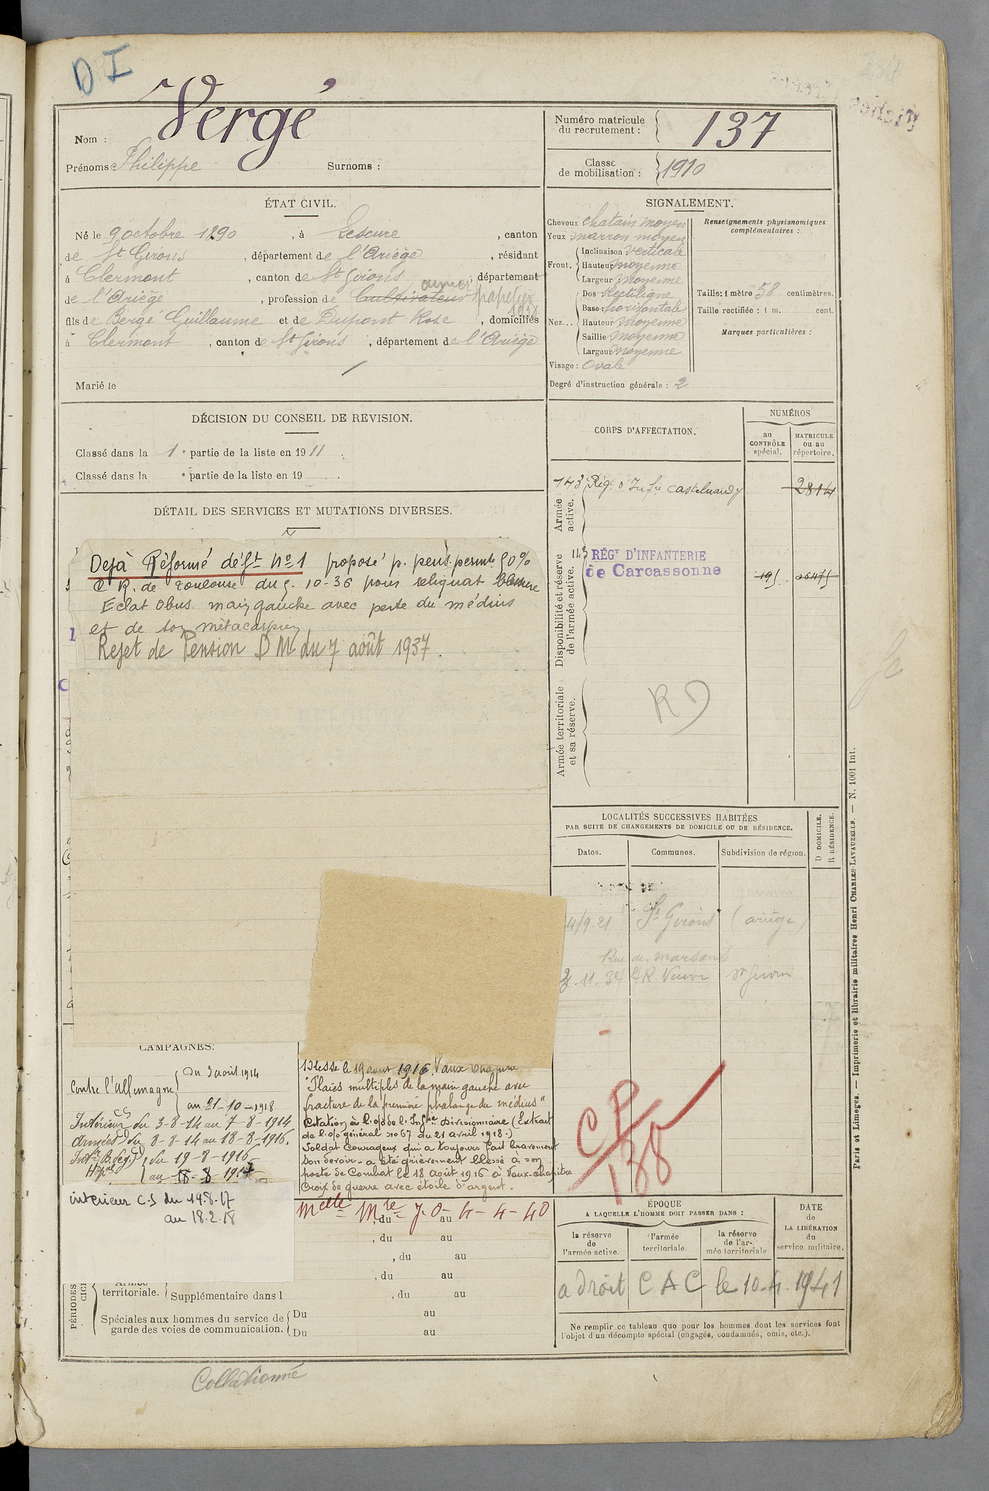 D I
Nom : Vergé
Prénoms : Philippe Surnoms :
Numéro matricule
du recrutement : 137
Classe
de mobilisation : 1910
ÉTAT CIVIL.
Né le 9 octobre 1890, à Lescure, canton
de St Girons, département de l'Ariège, résidant
à Clermont, canton de St Girons, département
de l'Ariège, profession de Cultivateur papetier
fils de Bergé Guillaume et de Dupont Rose, domiciliés
à Clermont, canton de St Girons, département de l'Ariège
Marié le
SIGNALEMENT.
Cheveux chatain moyen
Yeux marron moyen
Front. Inclinaison verticale
Hauteur moyenne
Largeur moyenne
Nez... Dos Rectiligne
Base horizontale
Hauteur moyenne
Saillie moyenne
Largeur moyenne
Visage : ovale
Renseignements physionomiques
complémentaires :
Taille : 1 mètre 58 centimètres.
Taille rectifiée : 1 m. cent.
Marques particulières :
Degré d'instruction générale : 2
DÉCISION DU CONSEIL DE REVISION.
Classé dans la 1e partie de la liste en 1911.
Classé dans la e partie de la liste en 19
DÉTAIL DES SERVICES ET MUTATIONS DIVERSES.
Dejà Réformé déf.t No 1 proposé p. pens. permte 50%
C R. de Toulouse du 5-10-36 pour reliquat blessure
Eclat obus main gauche avec perte du médius
et de son métacarpien
Rejet de Pension D Mle du 7 août 1937.
CORPS D'AFFECTATION.
NUMÉROS
au
CONTRÔLE
spécial.
MATRICULE
ou au
répertoire.
Armée
active.
143 Rég. d'Infie Castelnaudy 2814
Disponibilité et réserve
de l'armée active.
143 RÉGt D'INFANTERIE
de Carcassonne
Armée territoriale
et sa réserve.
R D
LOCALITÉS SUCCESSIVES HABITÉES
PAR SUITE DE CHANGEMENTS DE DOMICILE OU DE RÉSIDENCE.
Dates. Communes. Subdivision de région.
D DOMICILE.
R RÉSIDENCE.
4/9.21 St Girons (ariège)
Rue de
11.34 St Girons
CAMPAGNES.
Contre l'Allemagne
Du 3 août 1914
au 21-10-1918
Intérieur CS du 3-8-14 au 7-8-1914
Armées du 8-8-14 au 18-8-1916.
Intr B. (Cg.) du 19-8-1916
au 1917
intérieur C.S du 14.8.17
au 18.2.18
Blessé le 18 août 1916. Vaux Chapitre
"Plaies multiples de la main gauche avec
fracture de la première phalange du médius"
Citation à l'o/de l'Infie Divisionnaire (Extrait
de l'o/général no 67 du 21 avril 1918.)
Soldat Courageux qui a toujours fait bravement
son devoir - a été grièvement blessé à son
poste de Combat le 18 août 1916 à Vaux-Chapitre
Croix de guerre avec étoile d'argent.
Melle Mre J.O. 4-4-40
, du au
, du au
, du au
, du au
, du au
PÉRIODES
territoriale. Supplémentaire dans l
Spéciales aux hommes du service de
garde des voies de communication.
Du au
Du au
C P
188
ÉPOQUE
A LAQUELLE L'HOMME DOIT PASSER DANS :
la réserve
de
l'armée active.
l'armée
territoriale.
la réserve
de l'ar-
mée territoriale
DATE
de
LA LIBÉRATION
du
service militaire.
a droit C A C le 10-4-1941
Ne remplir ce tableau que pour les hommes dont les services font
l'objet d'un décompte spécial (engagés, condamnés, omis, etc.).
Paris et Limoges. — Imprimerie et librairie militaires Henri CHARLES-LAVAUZELLE. — N. 1001 int.
Collationné